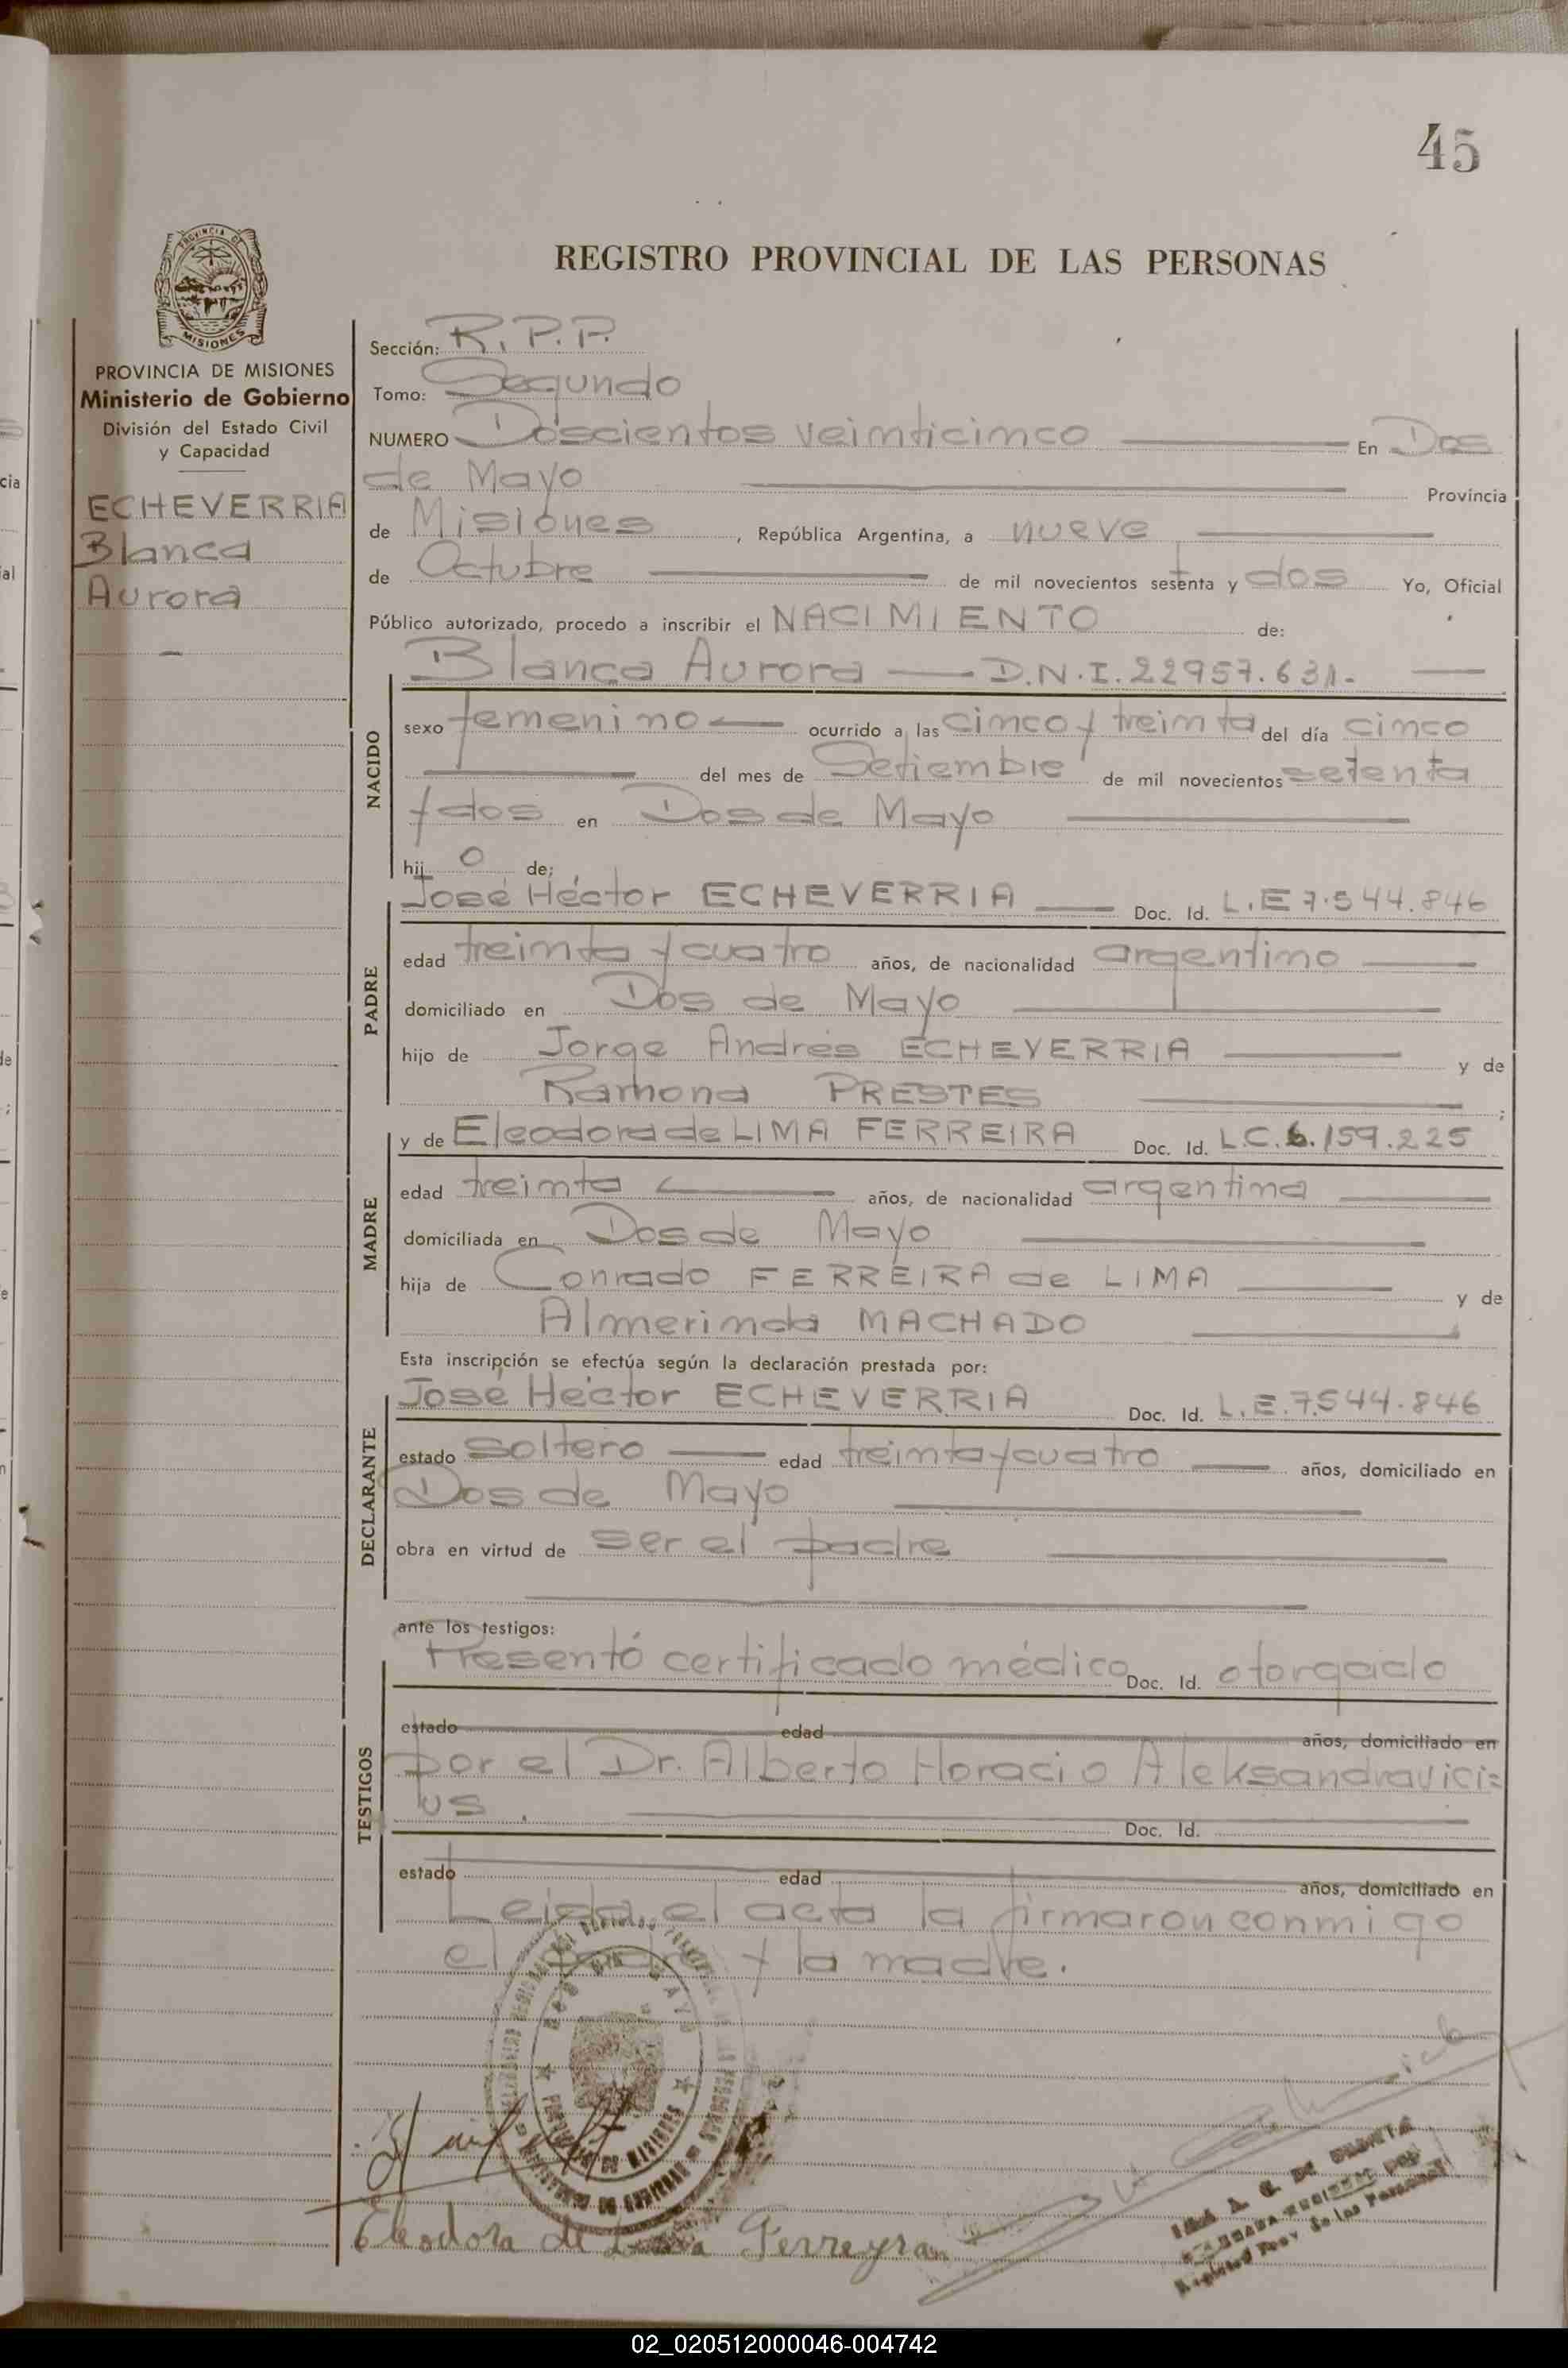 45
REGISTRO PROVINCIAL DE LAS PERSONAS
PROVINCIA DE MISIONES
Ministerio de Gobierno
División del Estado Civil
y Capacidad
ECHEVERRIA
Blanca
Aurora
Sección: R.P.P.
Tomo: Segundo
NUMERO Doscientos veinticinco En Dos
de Mayo Provincia
de Misiones, República Argentina, a nueve
de Octubre de mil novecientos setenta y dos Yo, Oficial
Público autorizado, procedo a inscribir el NACIMIENTO de:
Blanca Aurora — D.N.I. 22957.631.-
NACIDO
sexo femenino ocurrido a las cinco y treinta del día cinco
del mes de Setiembre de mil novecientos setenta
y dos en Dos de Mayo
hij o de:
José Héctor ECHEVERRIA Doc. Id. L.E 7.544.846
PADRE
edad treinta y cuatro años, de nacionalidad argentino
domiciliado en Dos de Mayo
hijo de Jorge Andrés ECHEVERRIA y de
Ramona PRESTES ;
y de Eleodora de LIMA FERREIRA Doc. Id. L.C. 6.159.225
MADRE
edad treinta años, de nacionalidad argentina
domiciliada en Dos de Mayo
hija de Conrado FERREIRA de LIMA y de
Almerinda MACHADO
Esta inscripción se efectúa según la declaración prestada por:
José Héctor ECHEVERRIA Doc. Id. L.E. 7.544.846
DECLARANTE
estado soltero edad treinta y cuatro años, domiciliado en
Dos de Mayo
obra en virtud de ser el padre
ante los testigos:
Presentó certificado médico Doc. Id. otorgado
TESTIGOS
estado edad años, domiciliado en
por el Dr. Alberto Horacio Aleksandravici=
us. Doc. Id.
estado edad años, domiciliado en
Leida el acta la firmaron conmigo
el padre y la madre.
Eleodora de Lima Ferreyra
02_020512000046-004742